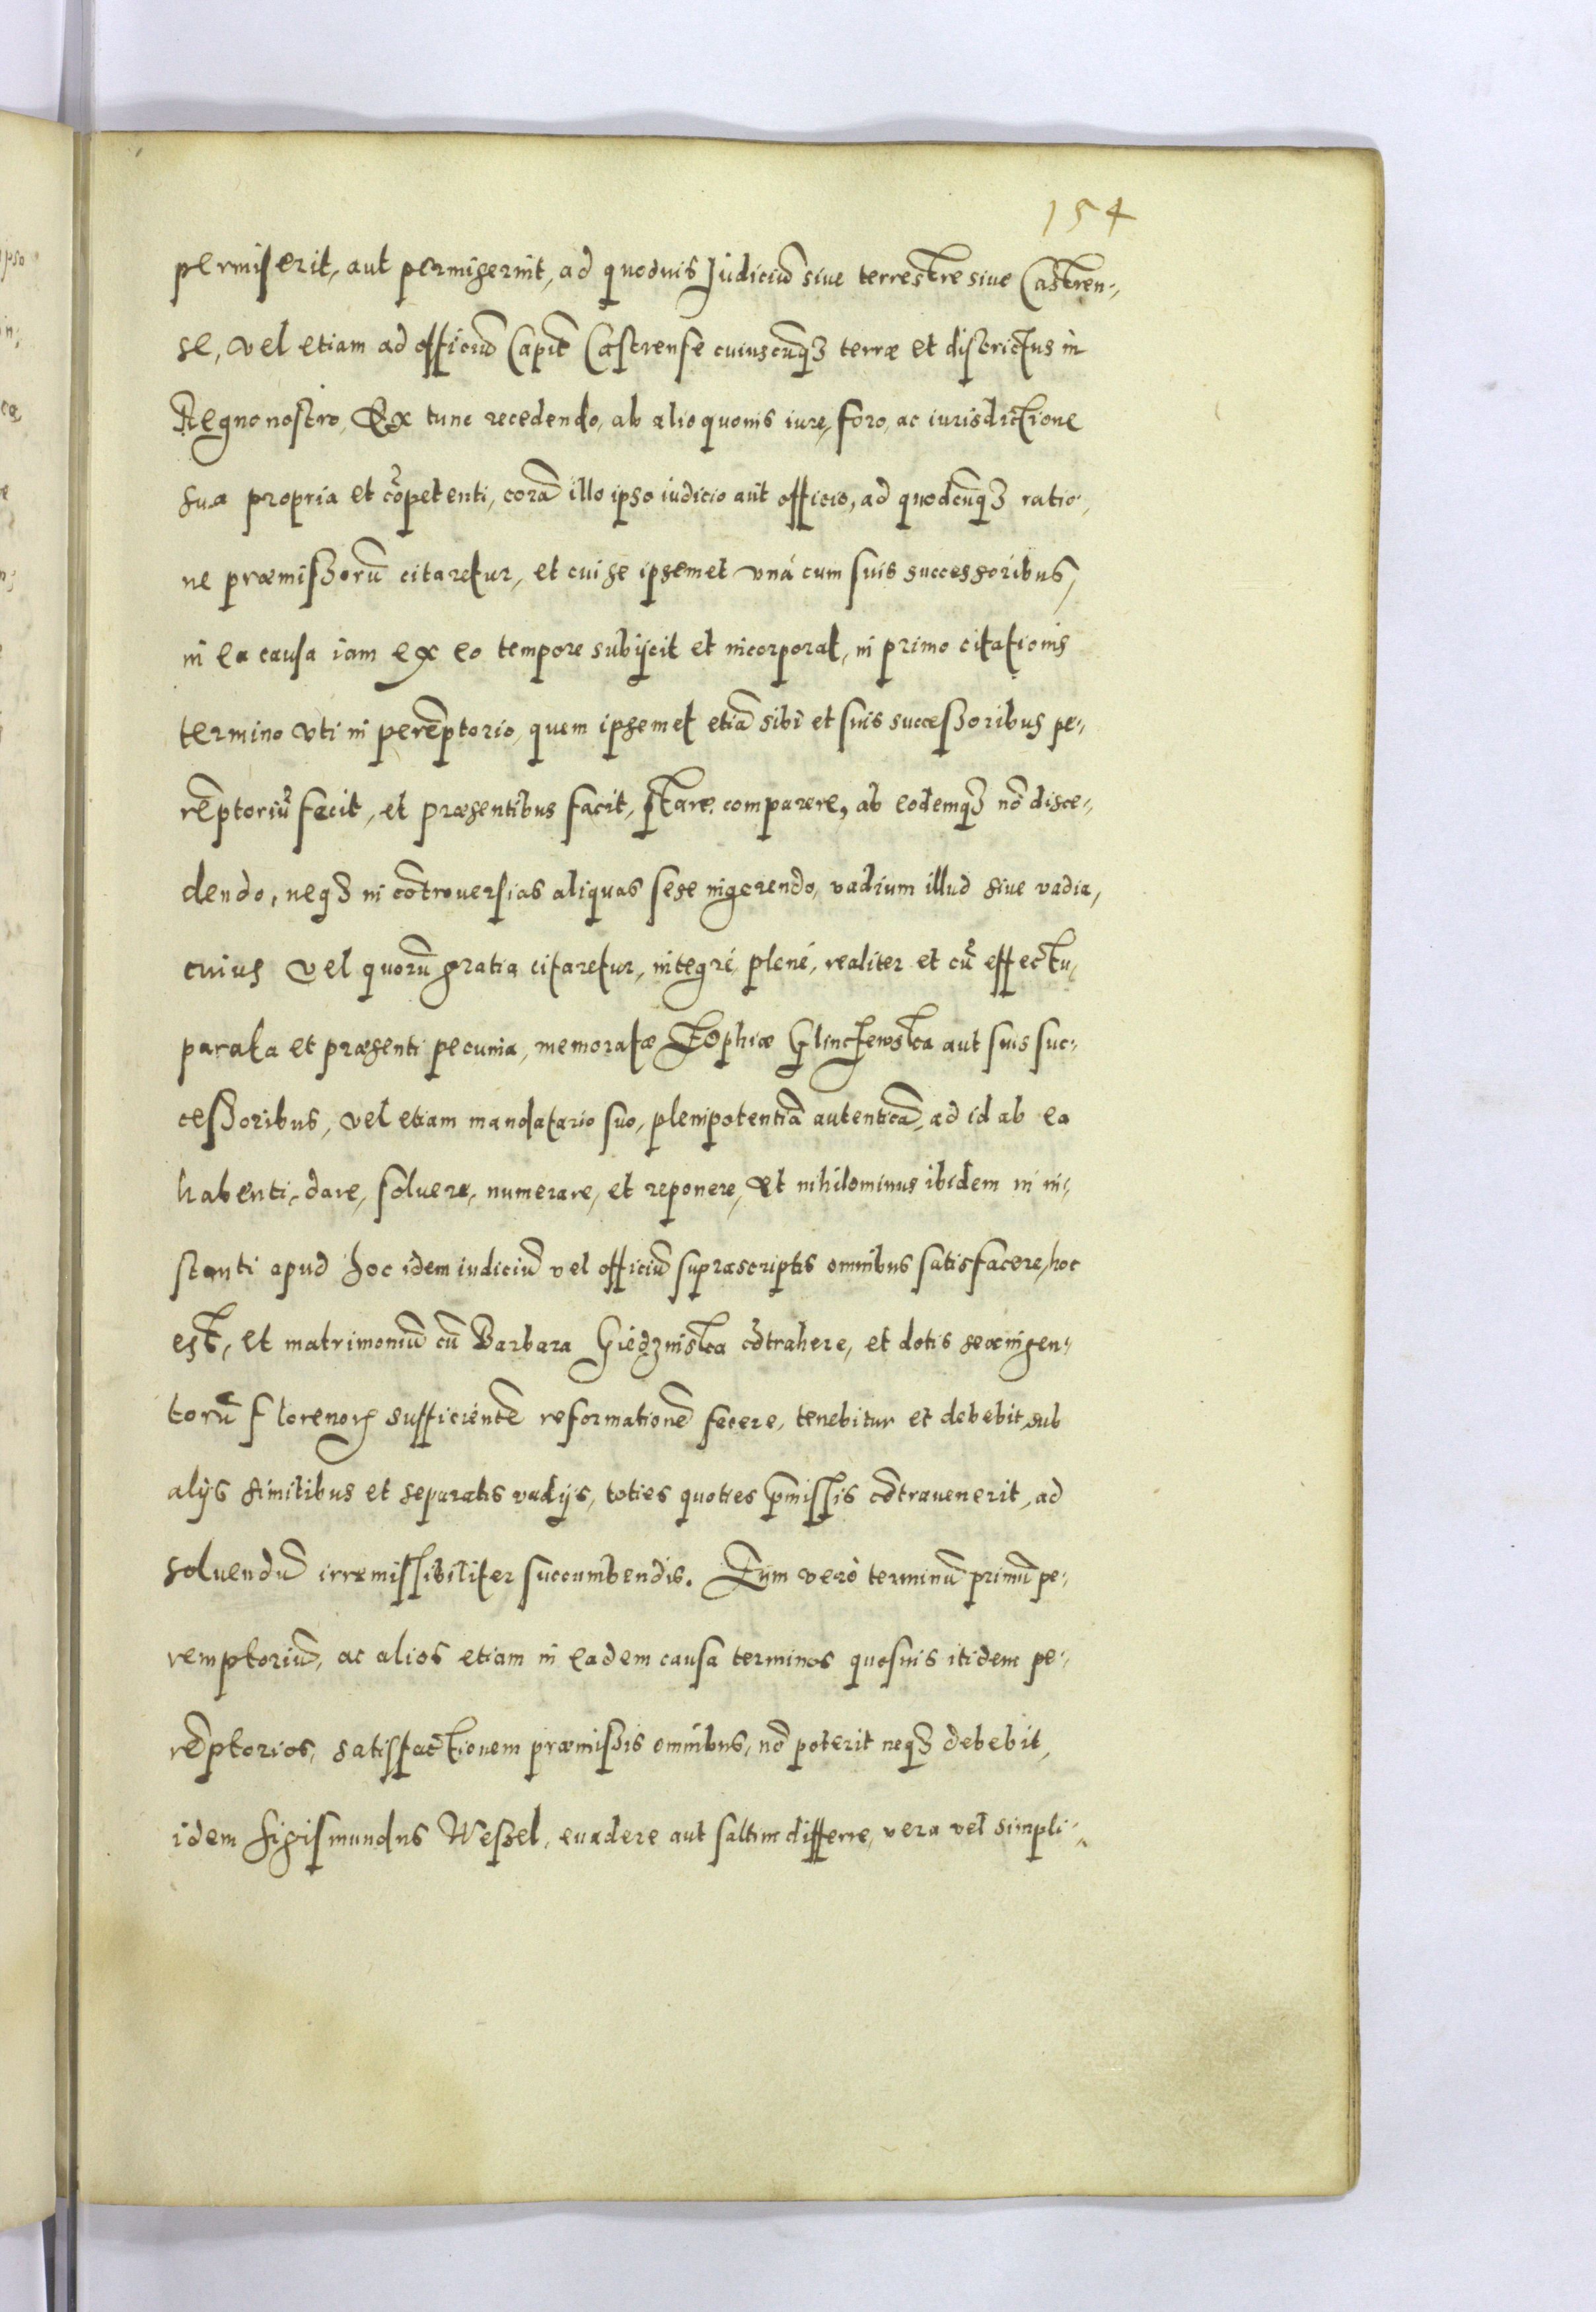 154
permiserit, aut permiserint, ad quoduis Judiciū siue terrestre siue Castren„
se, vel etiam ad officiū Capit̄ Castrense cuiuscūqꝫ terræ et districtus in
Regno nostro, Ex tunc recedendo, ab alio quouis iure, foro, ac iurisdictione
sua propria et cōpetenti, corā illo ipso iudicio aut officio, ad quodcūqꝫ ratio„
ne præmissorū citaretur, et cui se ipsemet vná cum suis successoribus,
in ea causa iam ex eo tempore subijcit et incorporat, in primo citationis
termino vti in perēptorio, quem ipsemet etiā sibi et suis successoribus pe„
rēptoriū fecit, et præsentibus facit, stare, comparere, ab eodemqꝫ nō disce„
dendo, neqꝫ in cōtrouersias aliquas sese ingerendo, vadium illud siue vadia,
cuius vel quorū gratia citaretur, integré, plené, realiter et cū effectu,
parata et præsenti pecunia, memoratæ Zophiæ Glinczewska aut suis suc„
cessoribus, vel etiam mandatario suo, plenipotentiā autenticā, ad id ab ea
habenti, dare, soluere, numerare, et reponere, et nihilominus ibidem in in„
stanti apud hoc idem iudiciū vel officiū suprascriptis omnibus satisfacere, hoc
est, et matrimoniū cū Barbara Giedzinska cōtrahere, et dotis sexingen„
torū florenoꝝ sufficientē reformationē facere, tenebitur et debebit, sub
alijs similibus et separatis vadijs, toties quoties p̄missis cōtrauenerit, ad
soluendū irremissibiliter succumbendis. Eum verò terminū primū pe„
remptoriū, ac alios etiam in eadem causa terminos quosuis itidem pe„
rēptorios, satisfactionem præmissis omnibus, nō poterit neqꝫ debebit,
idem Sigismundus Wessel, euadere aut saltim differre, vera vel simpli„